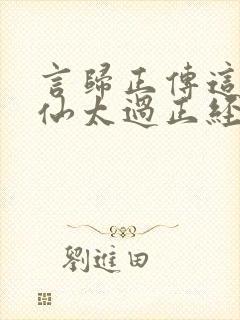 言歸正傳這
仙太過正經
劉進田